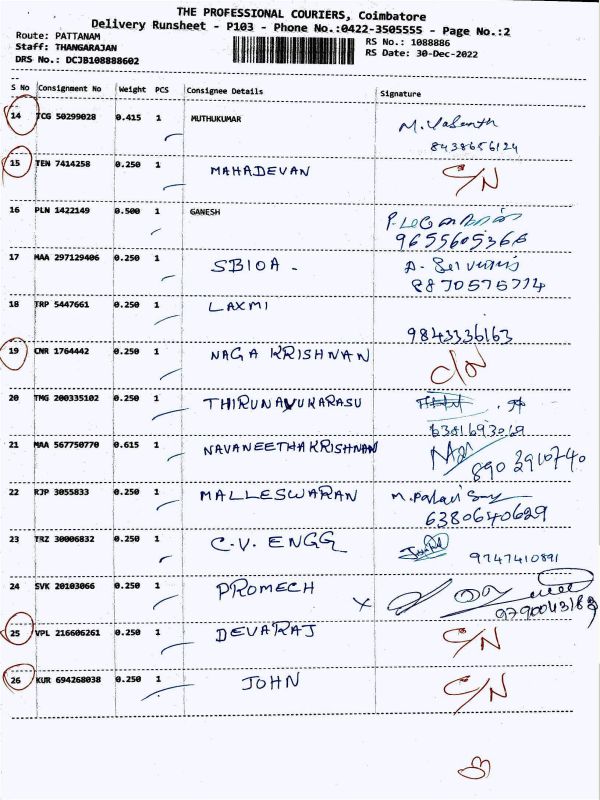 THE PROFESSIONAL COURIERS, Coimbatore
Delivery Runsheet - P103 - Phone No.:0422-3505555 - Page No.:2
Route: PATTANAM
Staff: THANGARAJAN
DRS No.: DCJB108888602
RS No.: 1088886
RS Date: 30-Dec-2022
S No Consignment No Weight PCS Consignee Details Signature
14 TCG 50299028 0.415 1 MUTHUKUMAR M. Vasanth
8438656124
15 TEN 7414258 0.250 1 MAHADEVAN C/N
16 PLN 1422149 0.500 1 GANESH
9655605366
17 MAA 297129406 0.250 1 SBIOA -
8870575774
18 TRP 5447661 0.250 1 LAXMI
9843336163
19 CNR 1764442 0.250 1 NAGA KRISHNAN C/N
20 TMG 200335102 0.250 1 THIRUNAVUKARASU
6381693069
21 MAA 567750770 0.615 1 NAVANEETHAKRISHNAN
8903910740
22 RJP 3055833 0.250 1 MALLESWARAN
6380640629
23 TRZ 30006832 0.250 1 C.V. ENGG
9747410891
24 SVK 20103066 0.250 1 PROMECH X
9790043183
25 VPL 216606261 0.250 1 DEVARAJ C/N
26 KUR 694268038 0.250 1 JOHN C/N